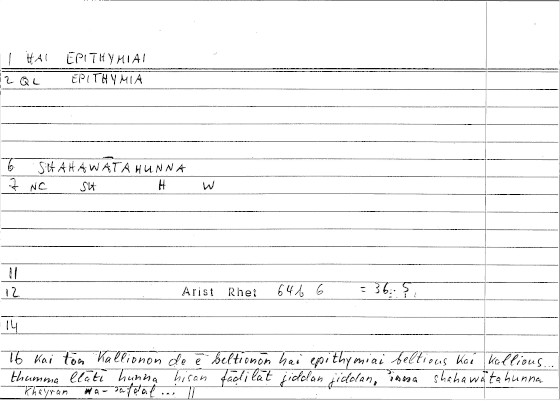 1 HAI EPITHYMIAI
2 QL EPITHYMIA
6 SHAHAWĀTAHUNNA
7 NC SH H W
11
12 Arist Rhet 64b 6 = 36. 5
14
16 Kai tōn kallionōn de ē beltionōn hai epithymiai beltious kai kallious...
thumma llātī hunna ḥisān fāḍilāt jiddan jiddan, inna shahawātahunna
khayran wa- afḍal... ||